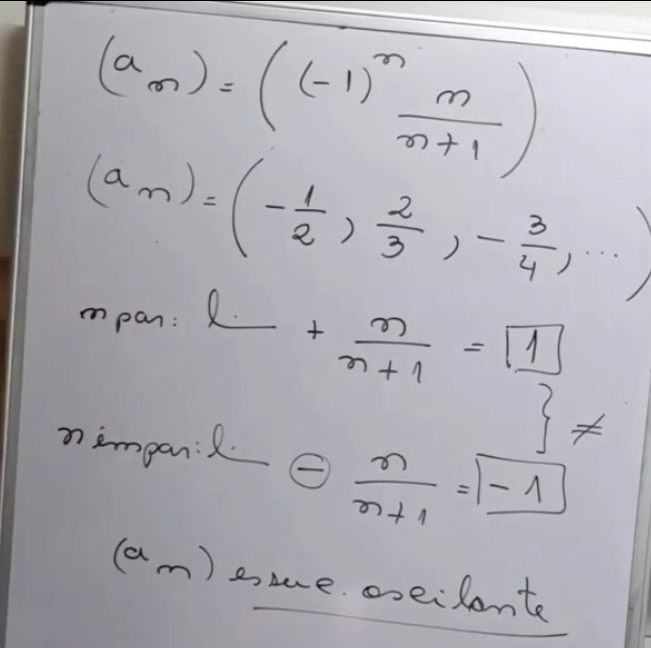 (a_n) = ( (-1)^n n/(n+1) )
(a_n) = ( -1/2, 2/3, -3/4, ... )
n par: l. + n/(n+1) = 1
} ≠
n impar: l. ⊖ n/(n+1) = -1
(a_n) es suc. oscilante